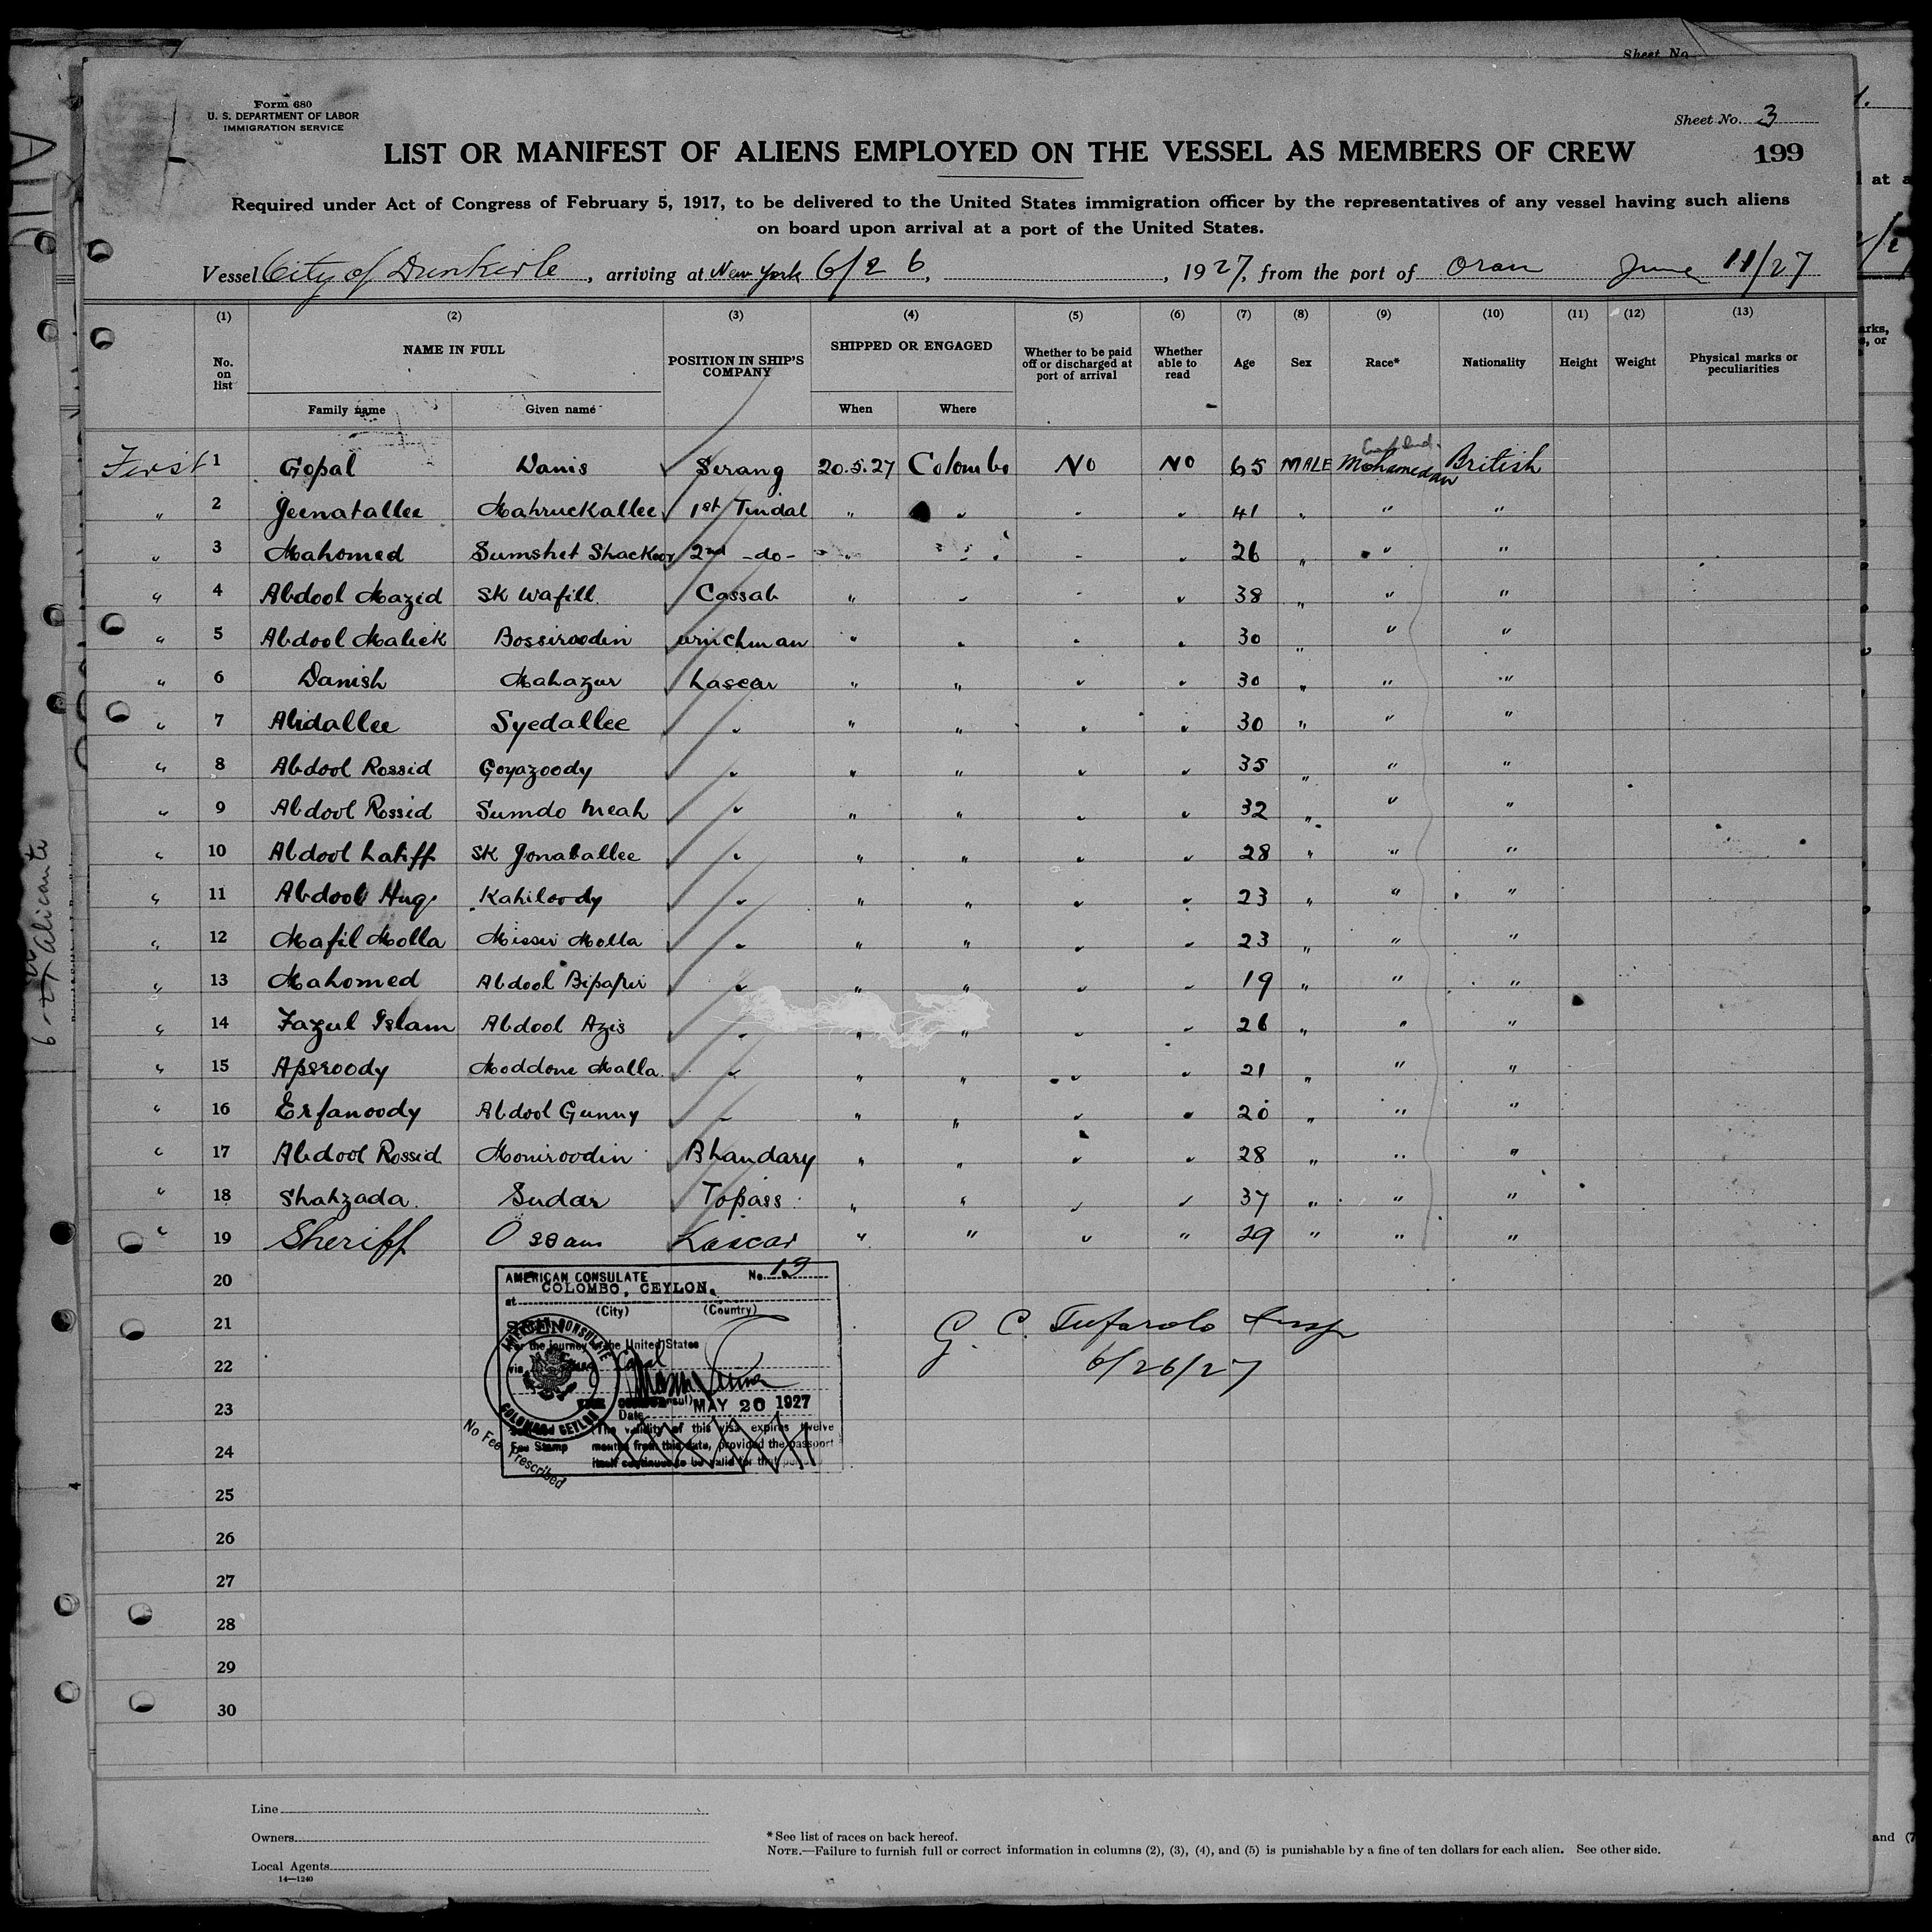 Sheet No.
Form 680
U. S. DEPARTMENT OF LABOR
IMMIGRATION SERVICE
Sheet No. 3
LIST OR MANIFEST OF ALIENS EMPLOYED ON THE VESSEL AS MEMBERS OF CREW
199
Required under Act of Congress of February 5, 1917, to be delivered to the United States immigration officer by the representatives of any vessel having such aliens
on board upon arrival at a port of the United States.
Vessel City of Dunkirk, arriving at New York 6/26, , 1927, from the port of Oran June 11/27
(1) (2) (3) (4) (5) (6) (7) (8) (9) (10) (11) (12) (13)
No. on list NAME IN FULL POSITION IN SHIP'S COMPANY SHIPPED OR ENGAGED Whether to be paid off or discharged at port of arrival Whether able to read Age Sex Race* Nationality Height Weight Physical marks or peculiarities
Family name Given name When Where
First 1 Gopal Danis Serang 20.5.27 Colombo No No 65 MALE East Ind. Mohamedan British
" 2 Jeenatallee Mahruckallee 1st Tindal " " " " 41 " " "
" 3 Mahomed Sumshet Shackoor 2nd -do- " " " " 26 " " "
" 4 Abdool Mazid SK Wafill Cassab " " " " 38 " " "
" 5 Abdool Malick Bossiroodin winchman " " " " 30 " " "
" 6 Danish Mahazur Lascar " " " " 30 " " "
" 7 Abdallee Syedallee " " " " " 30 " " "
" 8 Abdool Rossid Goyazoody " " " " " 35 " " "
" 9 Abdool Rossid Sumdo Meah " " " " " 32 " " "
" 10 Abdool Latiff SK Jonaballee " " " " " 28 " " "
" 11 Abdool Huq Kahiloody " " " " " 23 " " "
" 12 Mafil Molla Missir Molla " " " " " 23 " " "
" 13 Mahomed Abdool Bipapir " " " " " 19 " " "
" 14 Fazul Islam Abdool Azis " " " " " 26 " " "
" 15 Apsroody Moddone Malla " " " " " 21 " " "
" 16 Erfanoody Abdool Gunny " " " " " 20 " " "
" 17 Abdool Rossid Moniroodin Bhandary " " " " 28 " " "
" 18 Shahzada Sudar Topass " " " " 37 " " "
" 19 Sheriff Ossan Lascar " " " " 29 " " "
20
AMERICAN CONSULATE No. 19
at COLOMBO, CEYLON.
(City) (Country)
SEEN
For the journey to the United States
via
AMERICAN CONSULATE
COLOMBO CEYLON
Date MAY 20 1927
(The validity of this visa expires twelve
months from this date, provided the passport
itself continues to be valid for that
Fee Stamp
No Fee Prescribed
21
G. C. Tufarolo Insp
22
6/26/27
23
24
25
26
27
28
29
30
Line
Owners
Local Agents
14—1240
*See list of races on back hereof.
NOTE.—Failure to furnish full or correct information in columns (2), (3), (4), and (5) is punishable by a fine of ten dollars for each alien. See other side.
Alicante